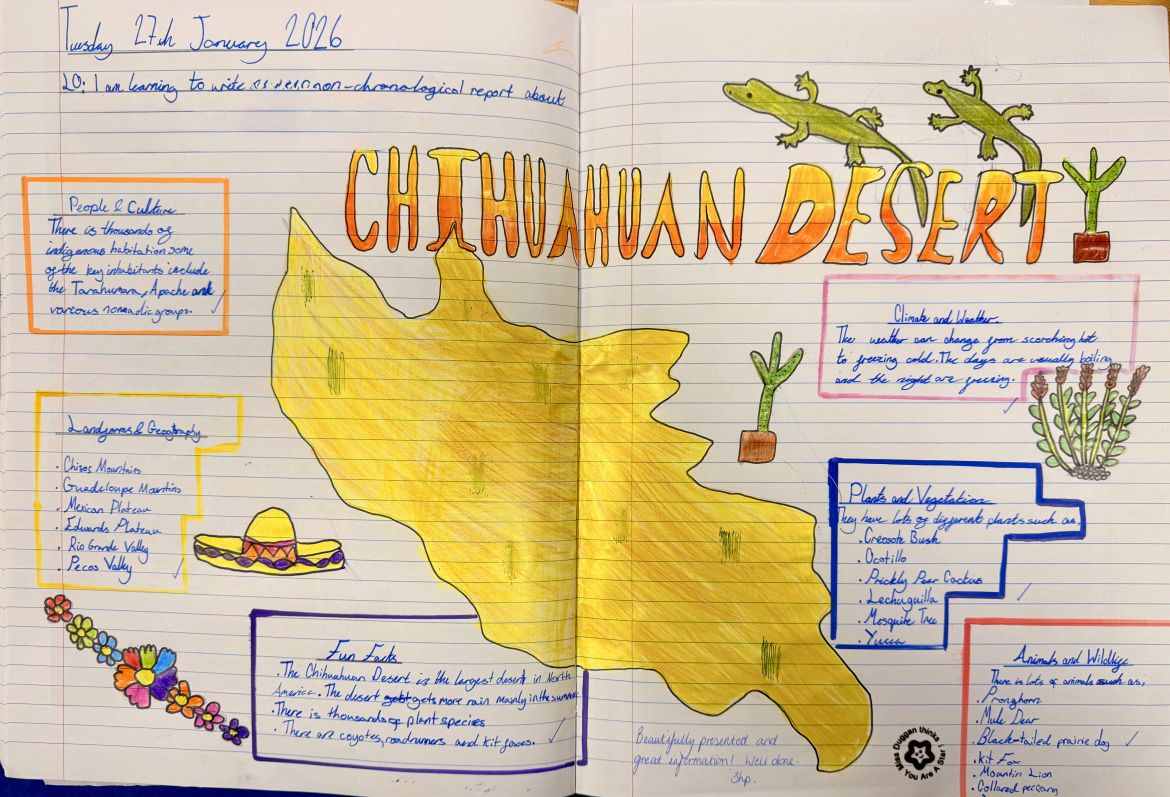 Tuesday 27th January 2026
LO: I am learning to write non-chronological report about
CHIHUAHUAN DESERT
People & Culture
There is thousands of
indigenous habitation some
of the key inhabitants include
the Tarahumara, Apache and
various nomadic groups.
Landforms & Geography
. Chisos Mountains
. Guadeloupe Mountins
. Mexican Plateau
. Edwards Plateau
. Rio Grande Valley
. Pecos Valley
Fun Facts
. The Chihuahuan Desert is the largest desert in North
America. The desert gets more rain mainly in the summer
. There is thousands of plant species
. There are coyotes, roadrunners and kit foxes.
Climate and Weather.
The weather can change from scorching hot
to freezing cold. The days are usually boiling
and the night are freezing.
Plants and Vegetation
They have lots of different plants such as,
. Creosote Bush
. Ocotillo
. Prickly Pear Cactus
. Lechuguilla
. Mesquite Tree
. Yucca
Animals and Wildlife
There is lots of animals such as,
. Pronghorn
. Mule Dear
. Black-tailed prairie dog
. Kit Fox
. Moantin Lion
. Collared peccary
Beautifully presented and
great information! Well done.
3hp.
Miss Duggan thinks
You Are A Star